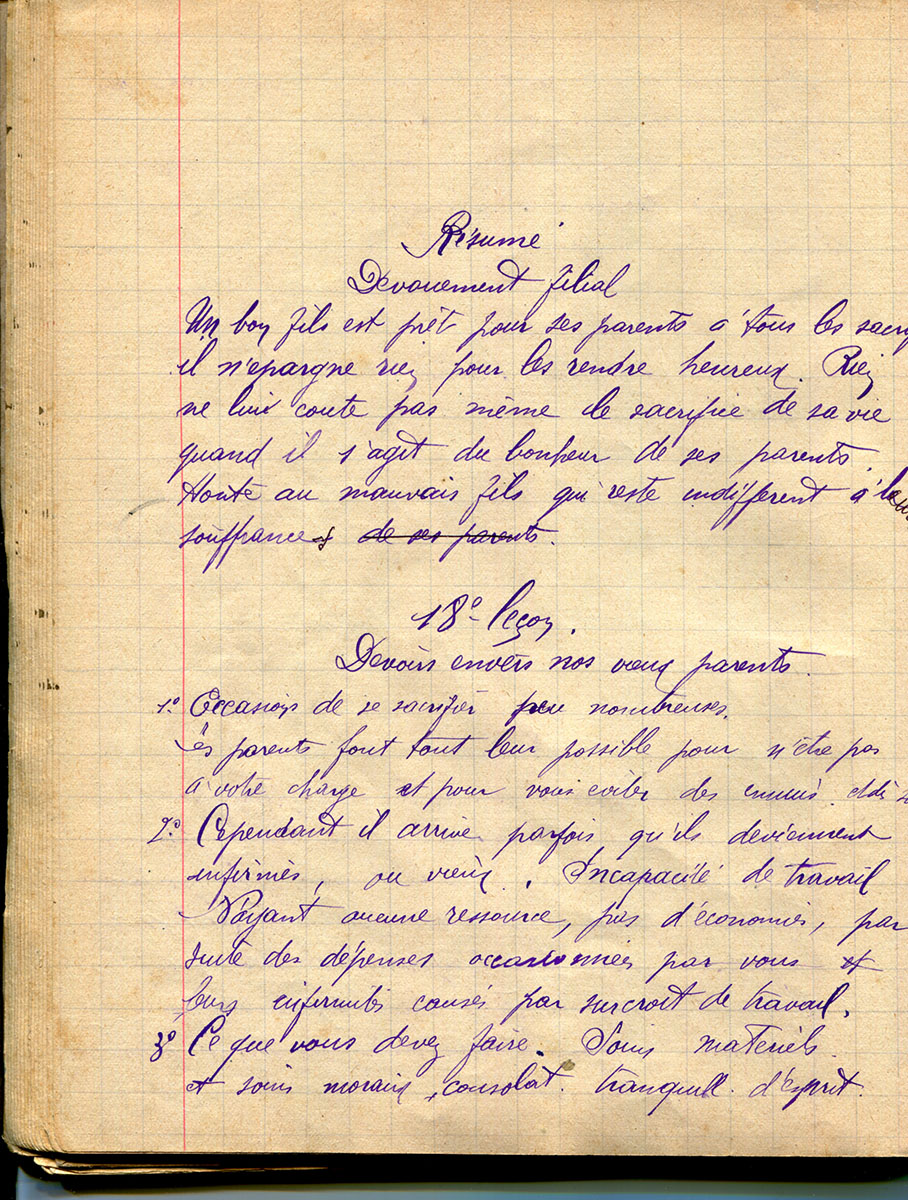 Résumé
Dévouement filial
Un bon fils est prêt pour ses parents à tous les sacri
il n'épargne rien pour les rendre heureux. Rien
ne lui coute pas même le sacrifice de sa vie
quand il s'agit du bonheur de ses parents.
Honte au mauvais fils qui reste indifférent à leur
souffrances de ses parents.
18e leçon.
Devoirs envers nos vieux parents
1.o Occasions de se sacrifier peu nombreuses.
Les parents font tout leur possible pour n'être pas
à votre charge et pour vous éviter des ennuis.
2.o Cependant il arrive parfois qu'ils deviennent
infirmes, ou vieux. Incapacité de travail
N'ayant aucune ressource, pas d'économies, par
suite des dépenses occasionnées par vous et
leurs infirmités causés par surcroit de travail.
3o Ce que vous devez faire. Soins matériels
et soins moraux, consolat. tranquill. d'esprit.